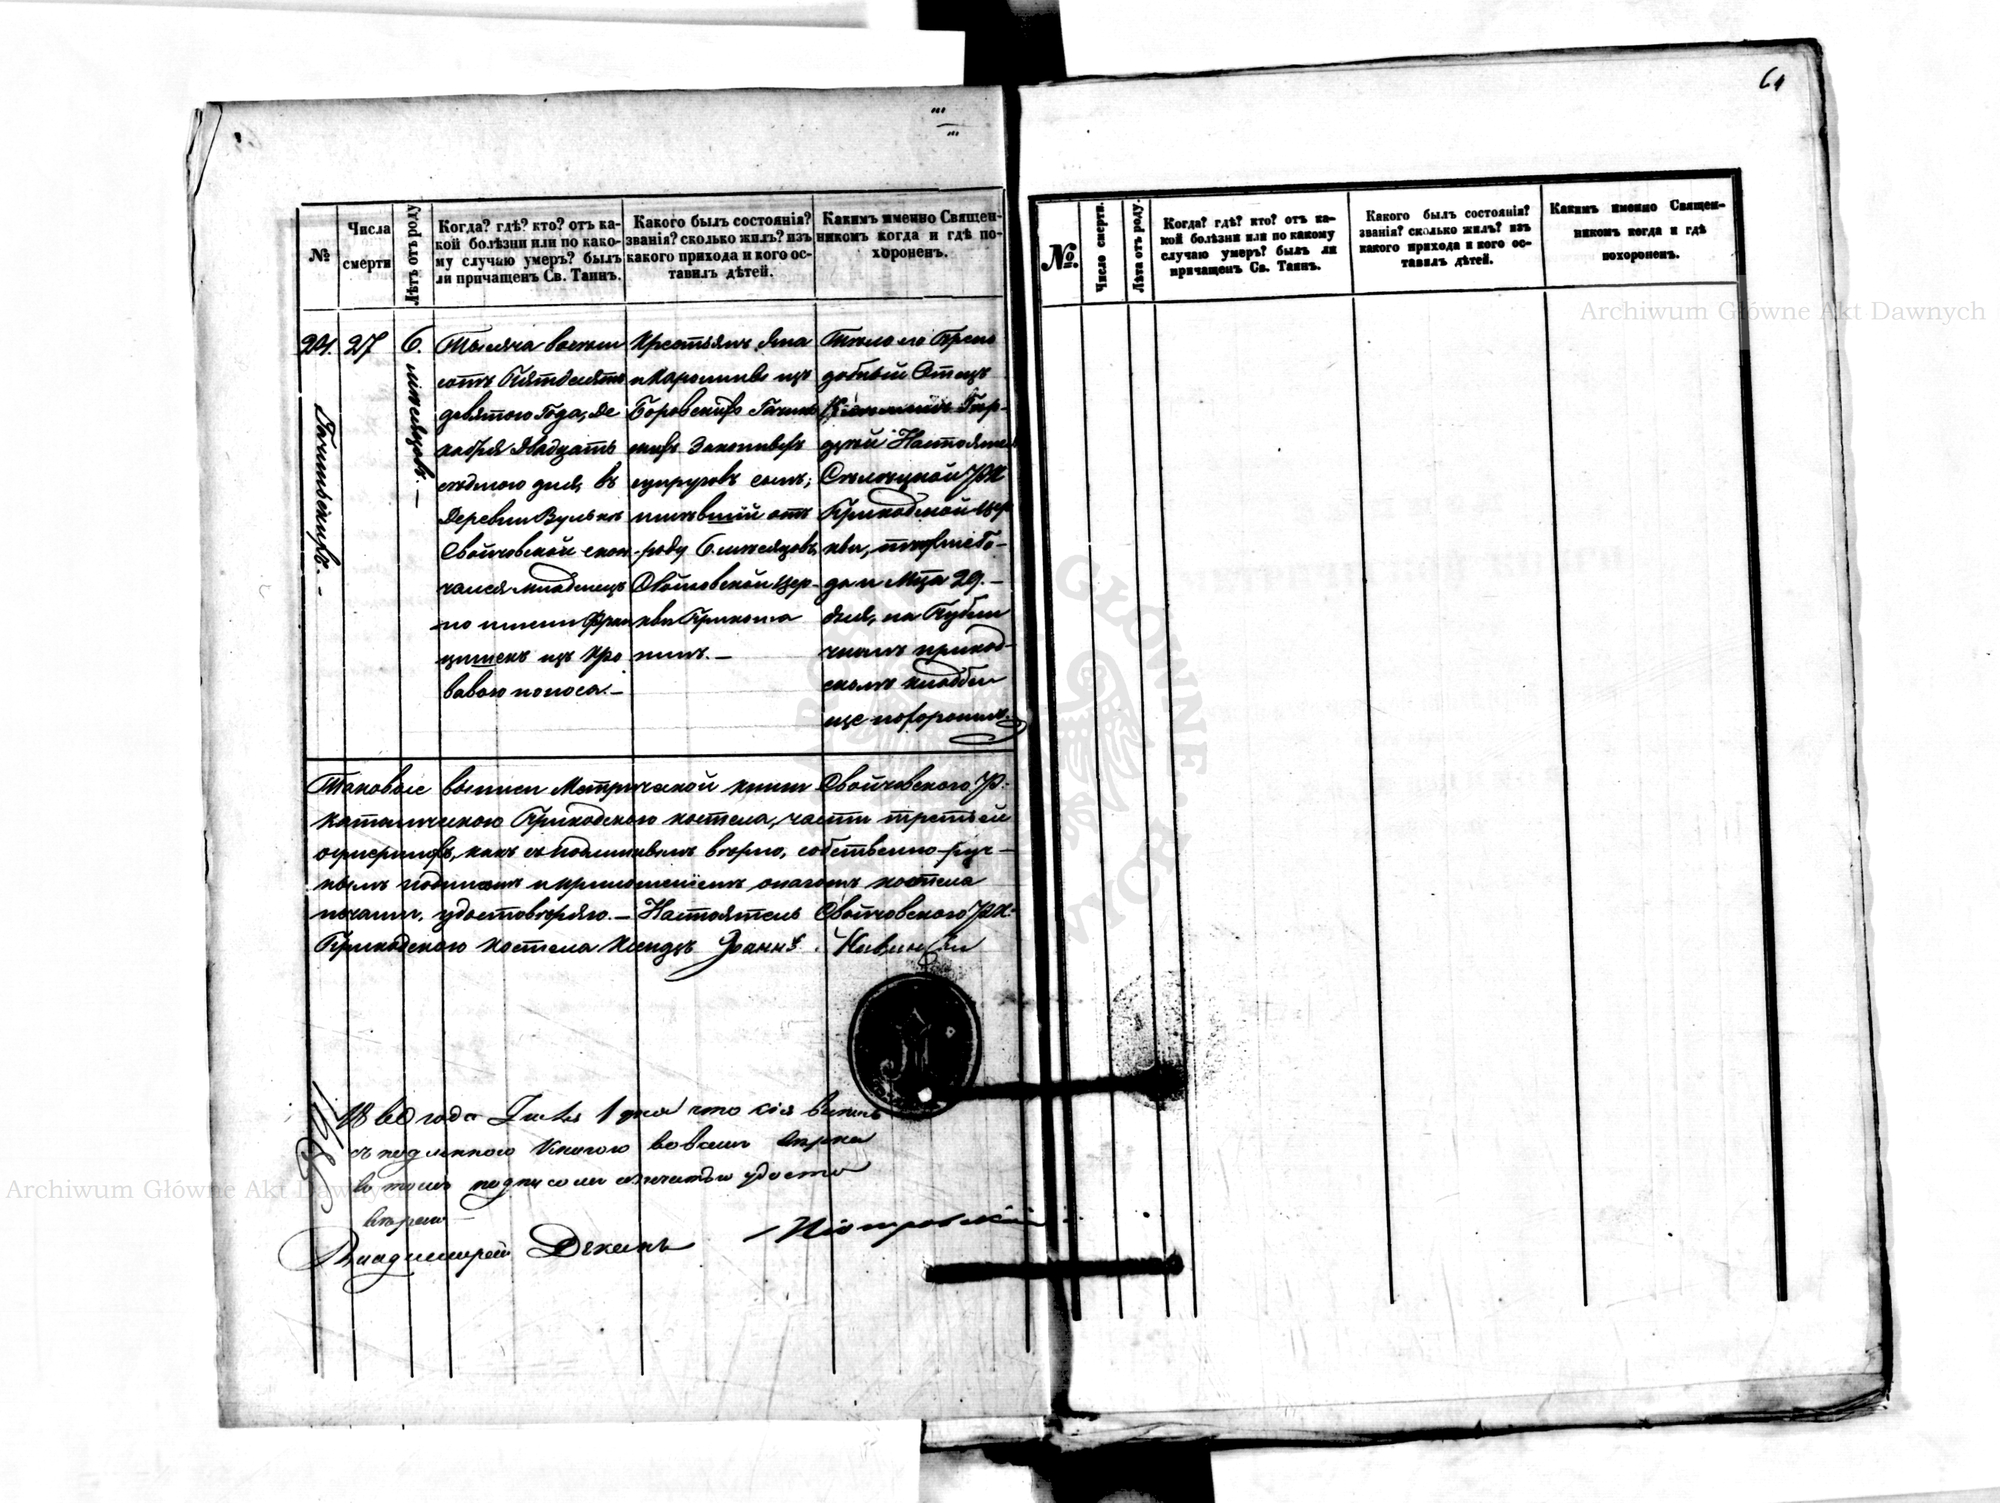 61
№
Числа
смерти
Лѣтъ отъ роду
Когда? гдѣ? кто? отъ ка-
кой болѣзни или по како-
му случаю умеръ? былъ
ли причащенъ Св. Таинъ.
Какого былъ состоянія?
званія? сколько жилъ? изъ
какого прихода и кого ос-
тавилъ дѣтей.
Какимъ именно Священ-
никомъ когда и гдѣ по-
хороненъ.
27
6.
мѣсяцовъ.—
Тысяча восемь
сотъ Пятьдесятъ
девятого Года, Де
кабря Двадцать
седмого дня, въ
Деревни Вульке
Свойчовской скон-
чался младенецъ
по имени Фран
цишекъ изъ Кро
вавою поноса.—
Крестьянъ Яна
и Каролины изъ
Боровскихъ
Законныхъ
супруговъ сынъ;
жившій отъ
роду 6. мѣсяцовъ,
Свойчовской Цер-
кви Прихожа
нинъ.—
Тѣло его Препо
добный Отецъ
Настоятель
Р.К.
Приходской Цер
кви, тогоже Го-
да и Мца 29.—
дня, на Публи
чномъ приход-
скомъ кладби
ще похоронилъ.
Таковые выписи Метрической книги Свойчовского Р:
Католического Приходского костела, части третьей
вѣрно, собственно-руч-
нымъ подписомъ и приложеніемъ онагожъ костела
печати, удостовѣряю.— Настоятель Свойчовского Р.К.
Приходского Костела Ксендзъ Іоаннъ
1860 года 1 дня что сія выпись
съ подлинною Книгою во всемъ вѣрна
въ томъ подписомъ и печатью удосто
вѣряю—
Владимирскій Деканъ Піотровскій
№.
Число смерти.
Лѣта отъ роду.
Когда? гдѣ? кто? отъ ка-
кой болѣзни или по какому
случаю умеръ? былъ ли
причащенъ Св. Таинъ.
Какого былъ состоянія?
званія? сколько жилъ? изъ
какого прихода и кого ос-
тавилъ дѣтей.
Какимъ именно Священ-
никомъ когда и гдѣ
похороненъ.
Archiwum Główne Akt Dawnych
Archiwum Główne Akt Dawnych